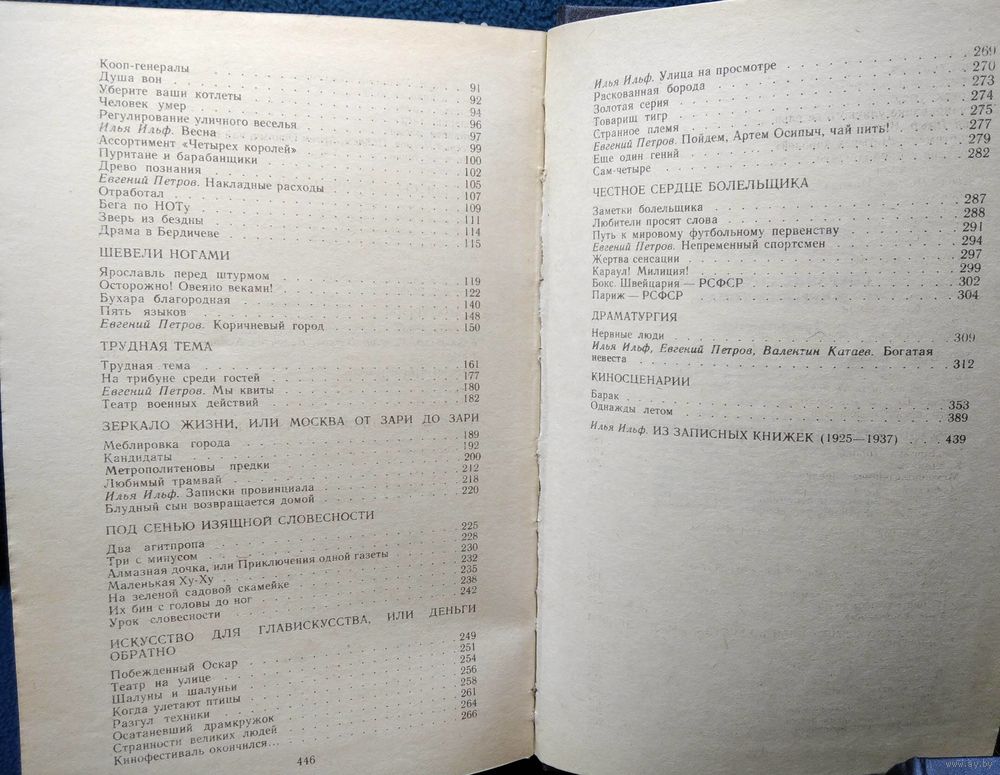 Кооп-генералы . . . 91
Душа вон . . . 92
Уберите ваши котлеты . . . 94
Человек умер . . . 96
Регулирование уличного веселья . . . 97
Илья Ильф. Весна . . . 99
Ассортимент «Четырех королей» . . . 100
Пуритане и барабанщики . . . 102
Древо познания . . . 105
Евгений Петров. Накладные расходы . . . 107
Отработал . . . 109
Бега по НОТу . . . 111
Зверь из бездны . . . 114
Драма в Бердичеве . . . 115
ШЕВЕЛИ НОГАМИ
Ярославль перед штурмом . . . 119
Осторожно! Овеяно веками! . . . 122
Бухара благородная . . . 140
Пять языков . . . 148
Евгений Петров. Коричневый город . . . 150
ТРУДНАЯ ТЕМА
Трудная тема . . . 161
На трибуне среди гостей . . . 177
Евгений Петров. Мы квиты . . . 180
Театр военных действий . . . 182
ЗЕРКАЛО ЖИЗНИ, ИЛИ МОСКВА ОТ ЗАРИ ДО ЗАРИ
Меблировка города . . . 189
Кандидаты . . . 192
Метрополитеновы предки . . . 200
Любимый трамвай . . . 212
Илья Ильф. Записки провинциала . . . 218
Блудный сын возвращается домой . . . 220
ПОД СЕНЬЮ ИЗЯЩНОЙ СЛОВЕСНОСТИ
Два агитпропа . . . 225
Три с минусом . . . 228
Алмазная дочка, или Приключения одной газеты . . . 230
Маленькая Ху-Ху . . . 232
На зеленой садовой скамейке . . . 235
Их бин с головы до ног . . . 238
Урок словесности . . . 242
ИСКУССТВО ДЛЯ ГЛАВИСКУССТВА, ИЛИ ДЕНЬГИ
ОБРАТНО
Побежденный Оскар . . . 249
Театр на улице . . . 251
Шалуны и шалуньи . . . 254
Когда улетают птицы . . . 256
Разгул техники . . . 258
Осатаневший драмкружок . . . 261
Странности великих людей . . . 264
Кинофестиваль окончился... . . . 266
446
Илья Ильф. Улица на просмотре . . . 269
Раскованная борода . . . 270
Золотая серия . . . 273
Товарищ тигр . . . 274
Странное племя . . . 275
Евгений Петров. Пойдем, Артем Осипыч, чай пить! . . . 277
Еще один гений . . . 279
Сам-четыре . . . 282
ЧЕСТНОЕ СЕРДЦЕ БОЛЕЛЬЩИКА
Заметки болельщика . . . 287
Любители просят слова . . . 288
Путь к мировому футбольному первенству . . . 291
Евгений Петров. Непременный спортсмен . . . 294
Жертва сенсации . . . 297
Караул! Милиция! . . . 299
Бокс. Швейцария — РСФСР . . . 302
Париж — РСФСР . . . 304
ДРАМАТУРГИЯ
Нервные люди . . . 309
Илья Ильф, Евгений Петров, Валентин Катаев. Богатая
невеста . . . 312
КИНОСЦЕНАРИИ
Барак . . . 353
Однажды летом . . . 389
Илья Ильф. ИЗ ЗАПИСНЫХ КНИЖЕК (1925—1937) . . . 439
www.ay.by